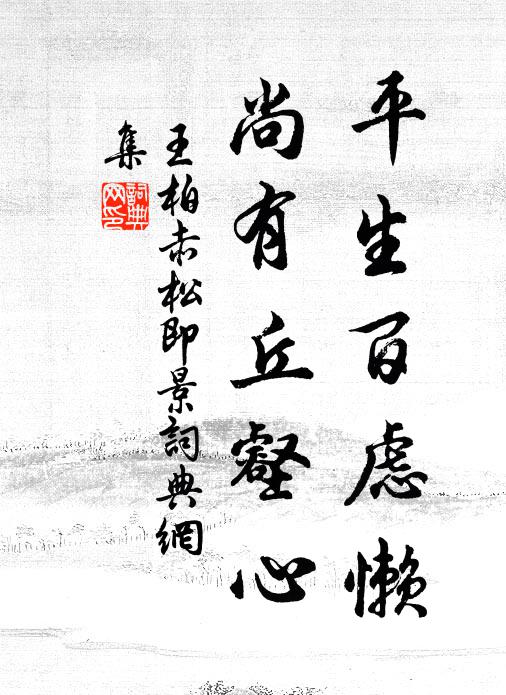 平生百慮懶
尚有丘壑心
王柏赤松即景詞典網
集
詞典网印